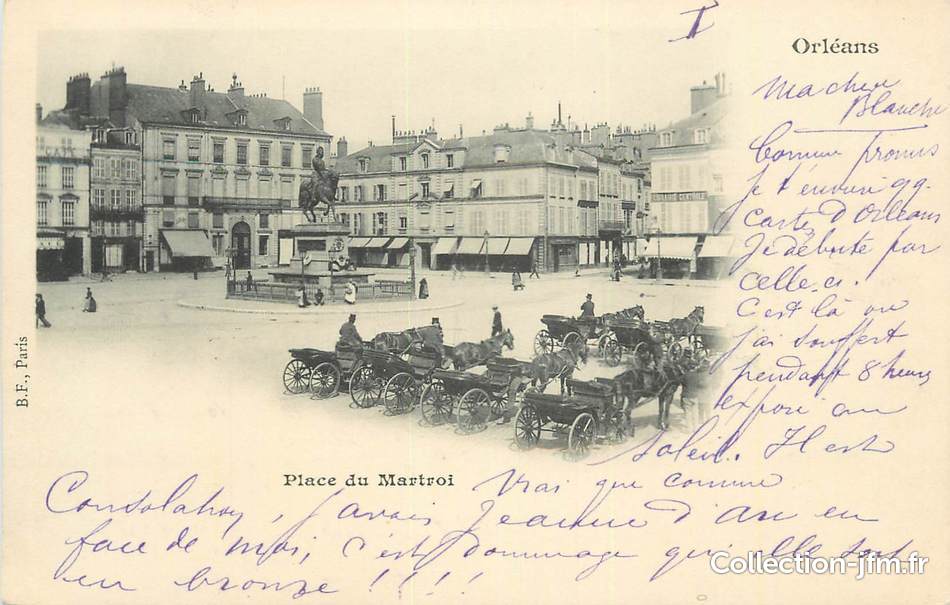 I
Orléans
Ma chère
Blanche
Comme promis
Je t'envoie qq.
Cartes d'Orléans
Je débute par
Celle-ci.
C'est là où
j'ai souffert
pendant 8 heures
exposé au
Soleil. Il est
vrai que comme
Consolation, j'avais Jeanne d'Arc en
face de moi, c'est dommage qu'elle soit
en bronze !!!!
Place du Martroi
B.F., Paris
Collection-jfm.fr